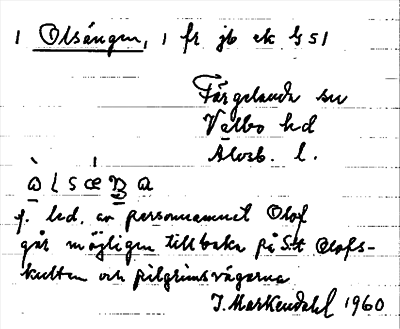 1 Olsängen, 1 fr jb ek G 51
Färgelanda sn
Valbo hd
Älvsb. l.
f. led. av personnamnet Olof
går möjligen tillbaka på S:t Olofs-
kulten och pilgrimsvägarna
I. Markendahl 1960